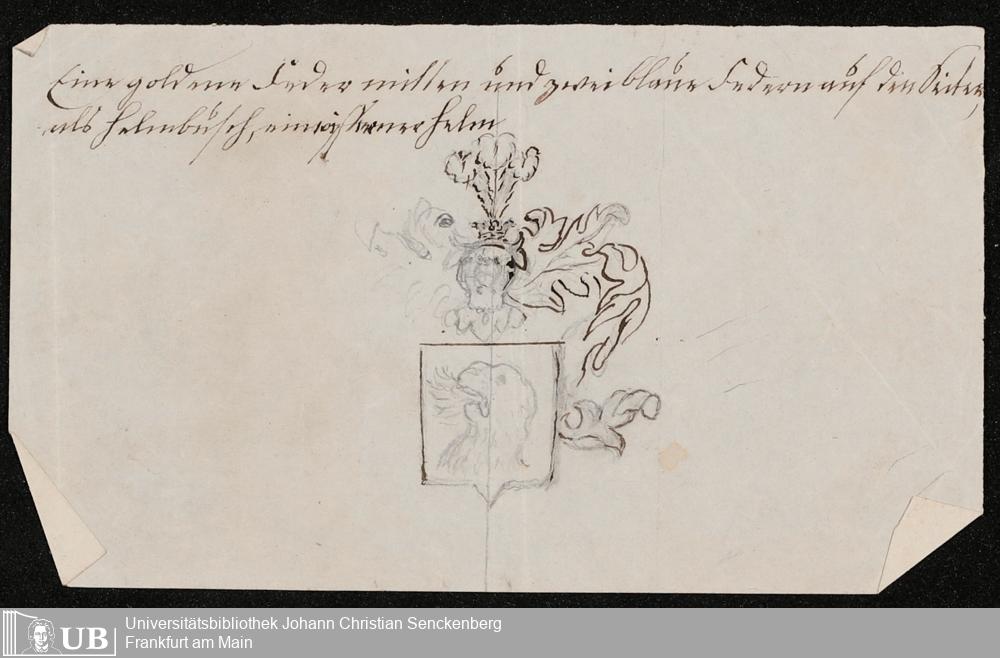 Eine goldene Feder mitten und zwei blaue Federn auf den Seiten,
als Helmbusch, ein Helm
UB
Universitätsbibliothek Johann Christian Senckenberg
Frankfurt am Main